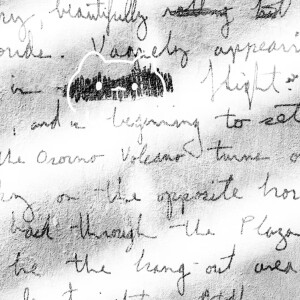 ry, beautifully
. Vaguely appeari
in flight.
, and is beginning to set
the Osorno Volcano turns o
on the opposite hor
back through the Plaza
be the hang-out area